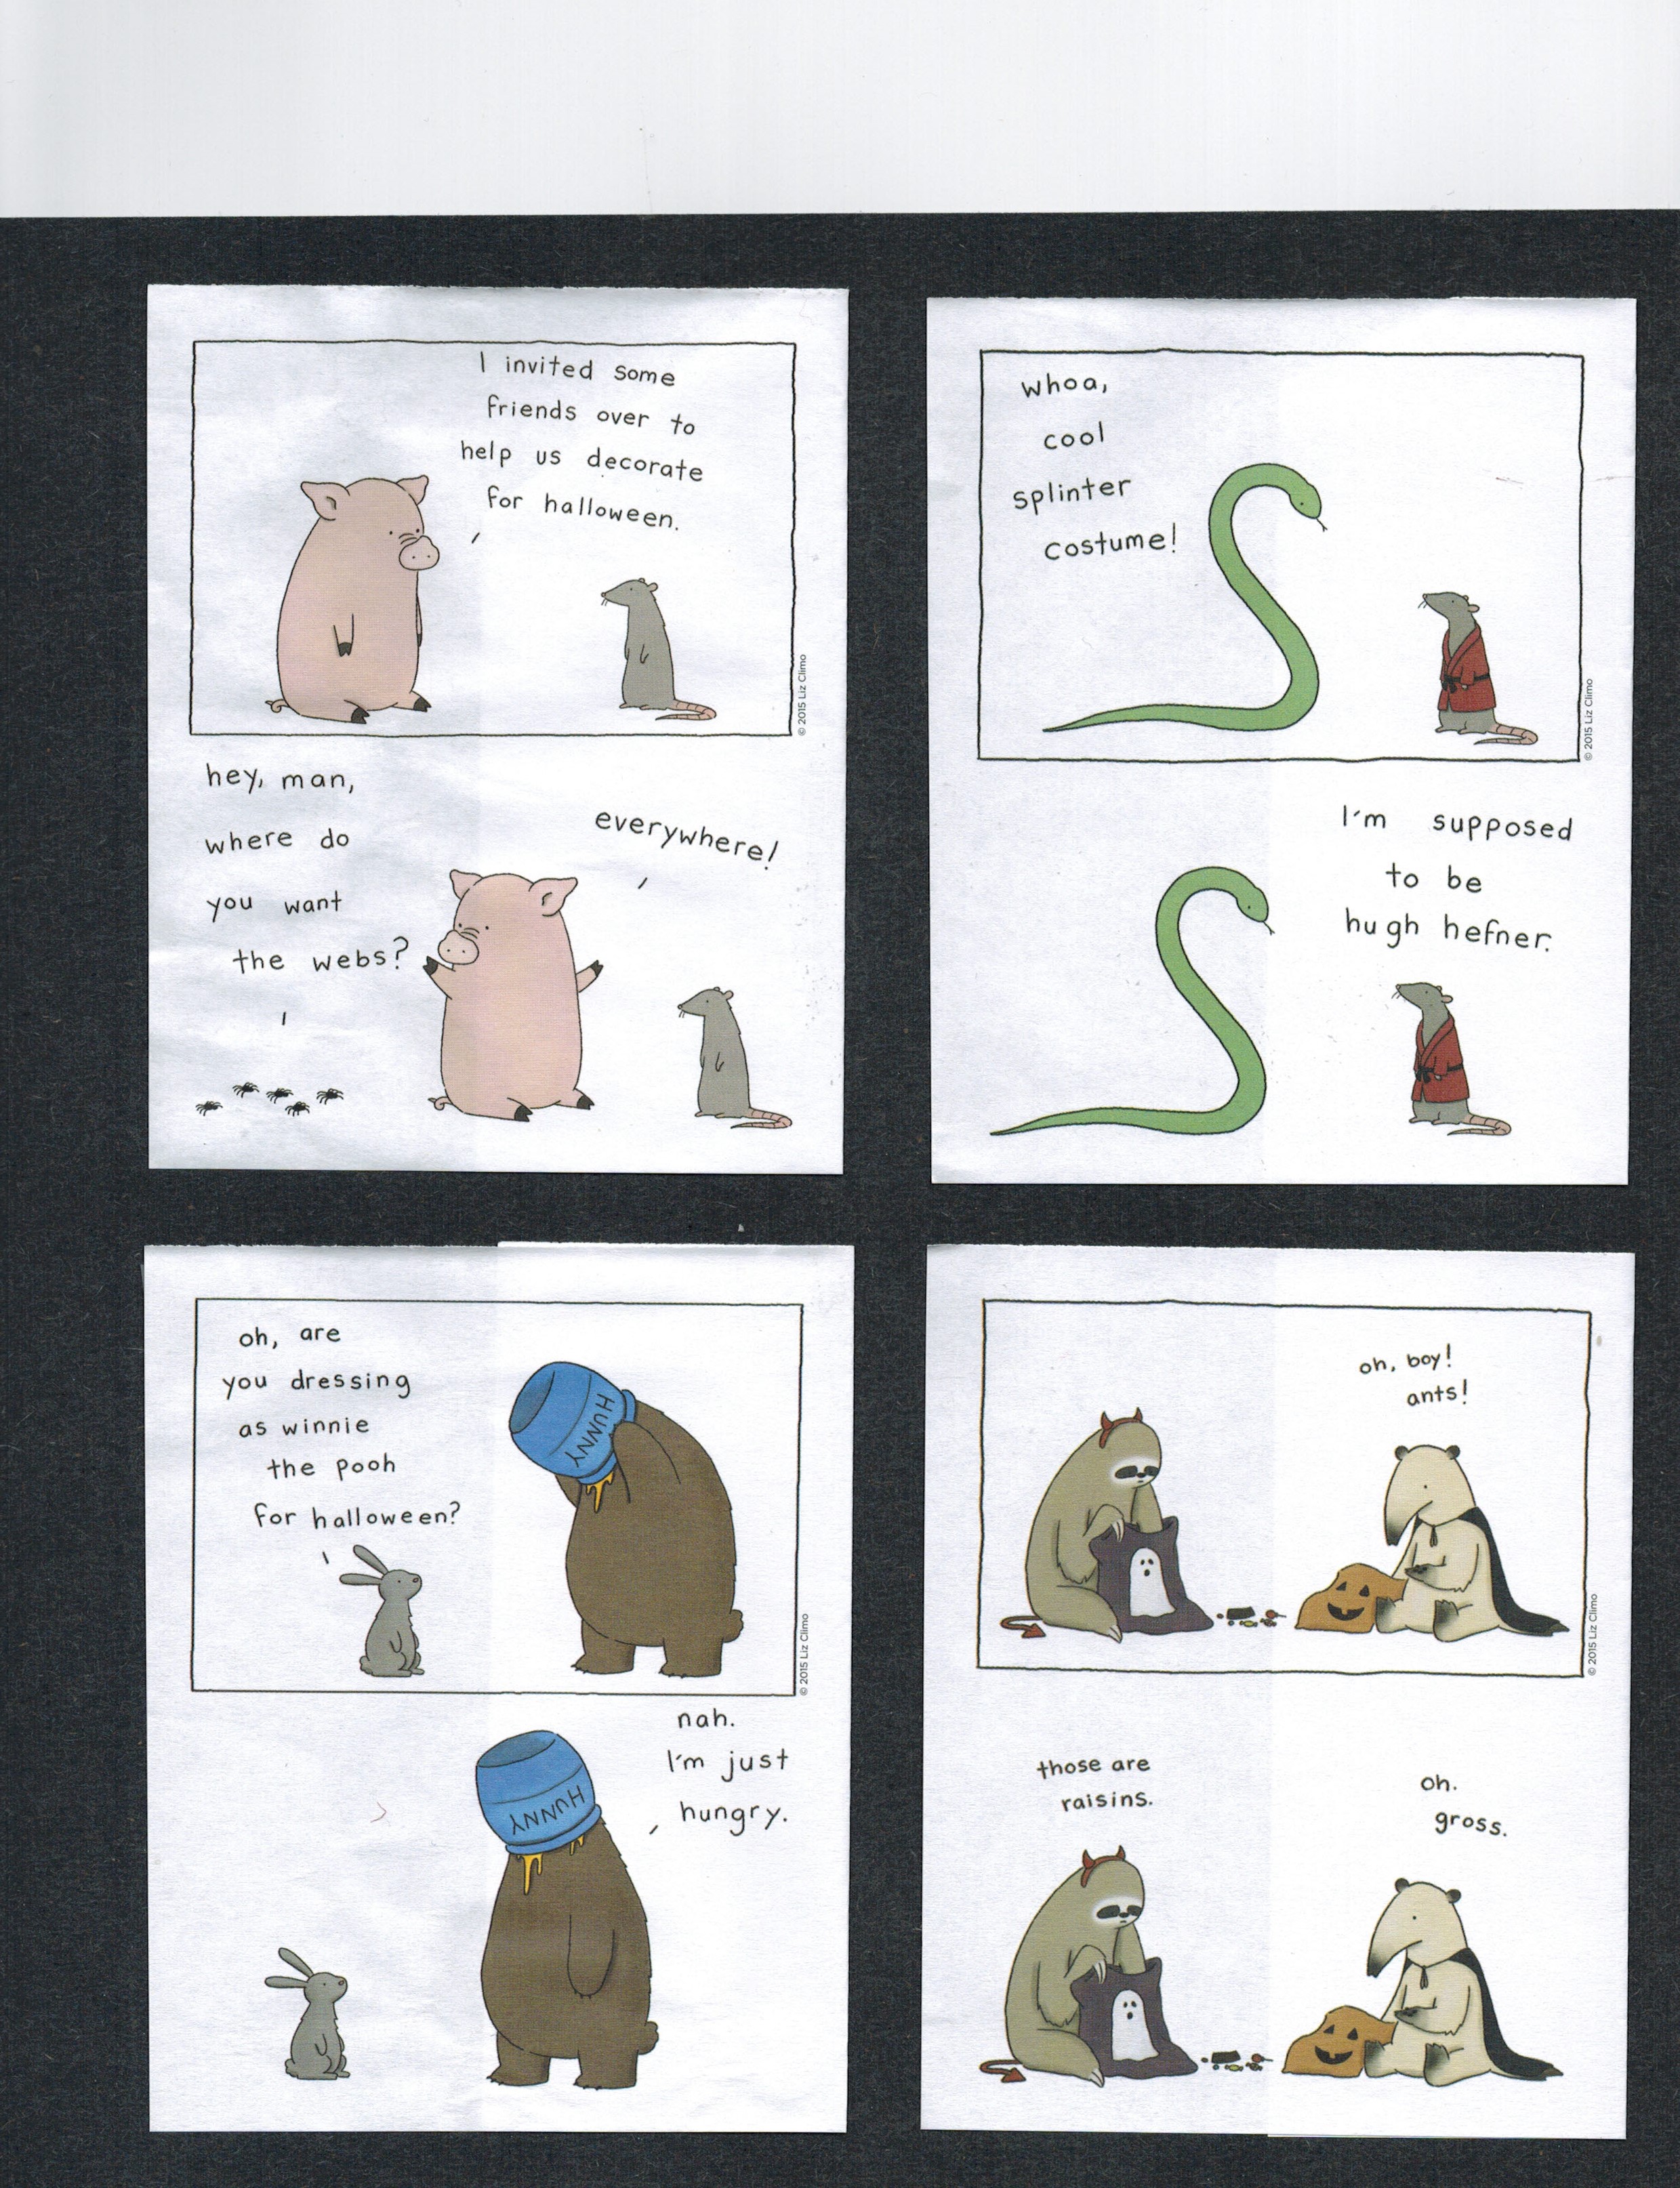 I invited some
friends over to
help us decorate
for halloween.
© 2015 Liz Climo
hey, man,
where do
you want
the webs?
everywhere!
whoa,
cool
splinter
costume!
© 2015 Liz Climo
I'm supposed
to be
hugh hefner.
oh, are
you dressing
as winnie
the pooh
for halloween?
HUNNY
© 2015 Liz Climo
nah.
I'm just
hungry.
HUNNY
oh, boy!
ants!
© 2015 Liz Climo
those are
raisins.
oh.
gross.